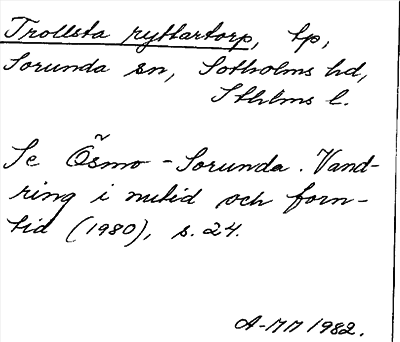 Trollsta ryttartorp, tp,
Sorunda sn, Sotholms hd,
Sthlms l.
Se Ösmo - Sorunda. Vand-
ring i nutid och forn-
tid (1980), s. 24.
A-MM 1982.